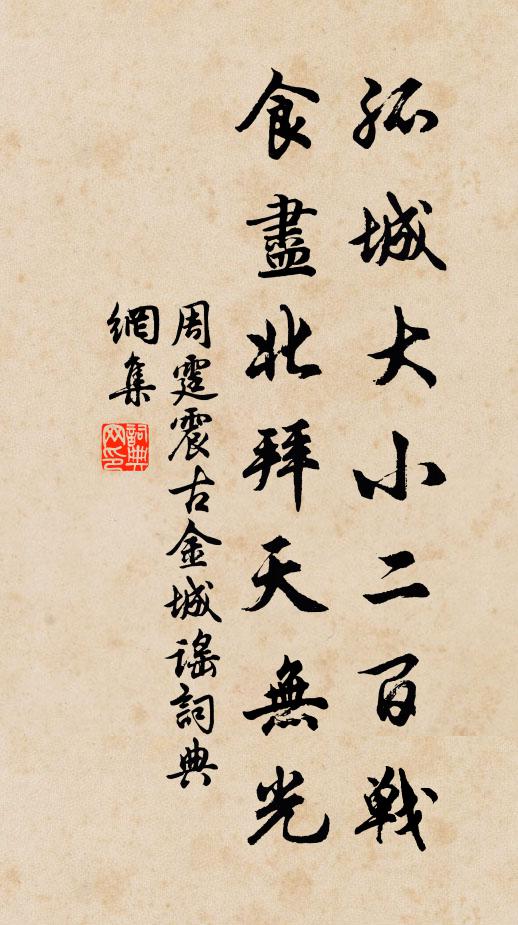 孤城大小二百戰
食盡北拜天無光
周霆震古金城謠詞典
網集
詞典网印